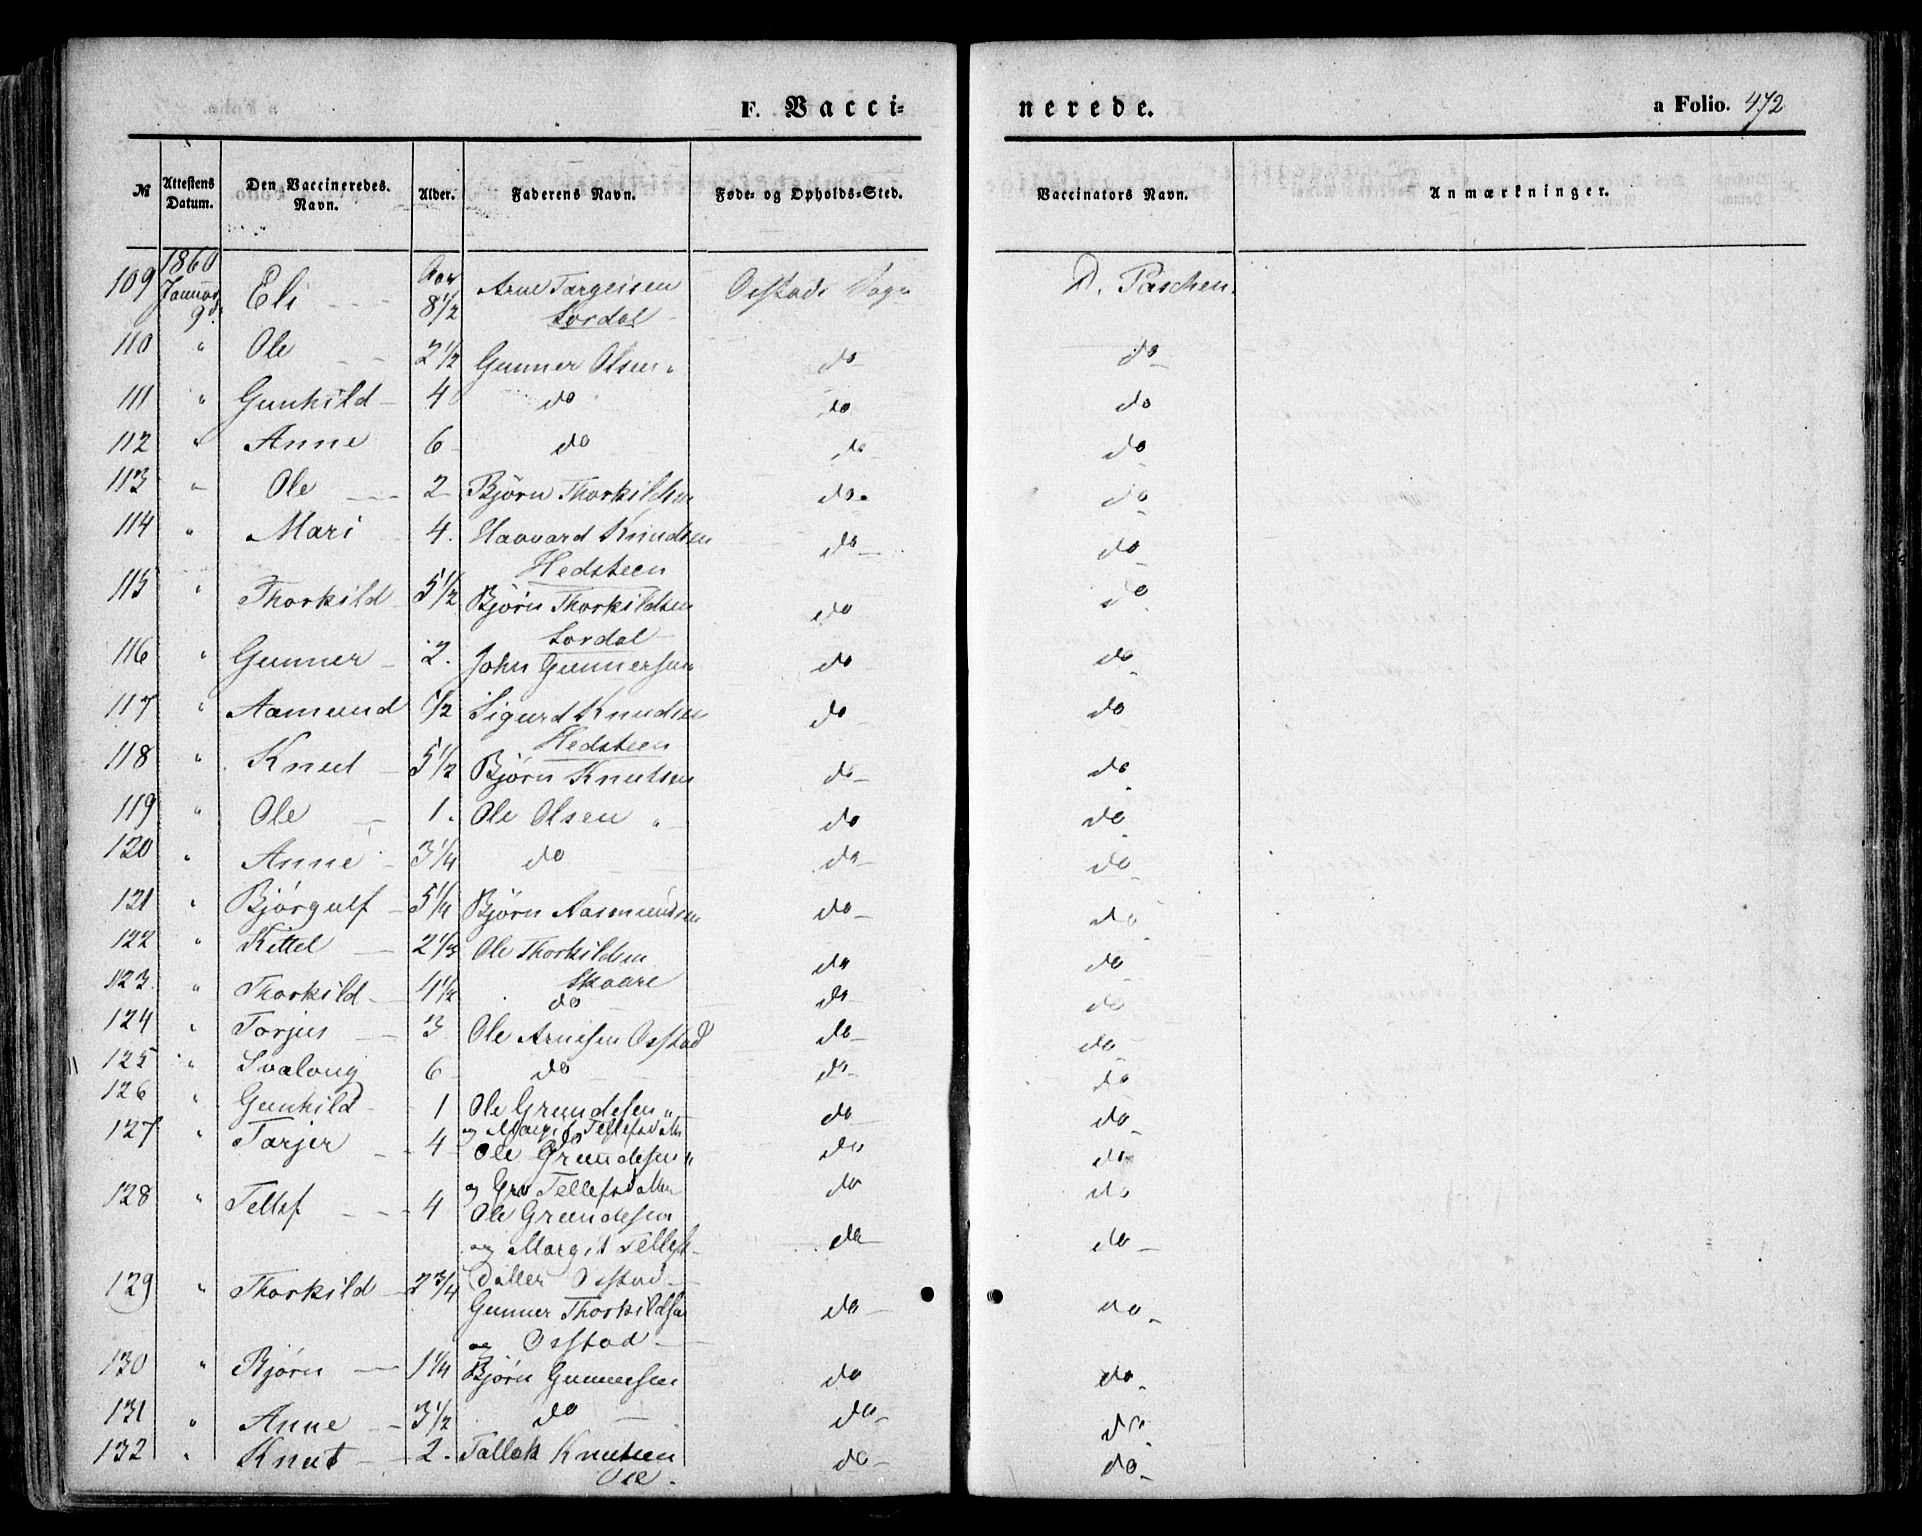 F. Vacci- nerede. a Folio. 472
№ Attestens Datum. Den Vaccineredes Navn. Alder. Faderens Navn. Føde- og Opholds-Sted. Vaccinators Navn. Anmærkninger.
109 1860 Januar 9d. Eli - - - Aar 8 1/2 Arne Targeisen Lordal - Osstads Sogn D. Paschen.
110 " Ole - - 2 1/2 Gunner Olsen " do - do -
111 " Gunhild - 4 do do do
112 " Anne 6 - do do - do -
113 " Ole - - - 2 - Bjørn Thorkildsen do - do -
114 " Mari - 4. Haavard Knudsen Hedsteen do - do -
115 " Thorkild - 5 1/2 Bjørn Thorkildsen Lordal do do -
116 " Gunner - 2. John Gunnersen do - do -
117 " Aamund 1/2 Sigurd Knudsen Hedsteen do - do -
118 " Knut - 5 1/2 Bjørn Knutsen do - do -
119 " Ole - - 1. Ole Olsen " - do do -
120 " Anne - 3 1/4 do do - do -
121 " Bjørgulf - 5 1/4 Bjørn Aasmundsen do - do -
122 " Kittel - 2 1/3 Ole Thorkildsen Skaare do do -
123. " Thorkild - 4 1/2 do do - do
124 " Torjus - 3 Ole Arnesen Osstad do - do -
125 " Svalaug 6 - do do - do
126 " Gunhild - 1 Ole Grundesen " - do do -
og Margit Tellefsdatter
127 " Tarjer - - 4 - Ole Grundesen " do do
og Gro Tellefsdatter do do -
128 " Tellef - - - 4 Ole Grundesen
og Margit Tellefs- do - do -
datter Osstad -
129 " Thorkild - 2 3/4 Gunner Thorkildsen do - do -
og Osstad -
130 " Bjørn - 1 1/4 Bjørn Gunnersen do do -
131 " Anne - 3 1/2 do - do - do -
132 " Knut - 2. Tallak Knutsen do - do -